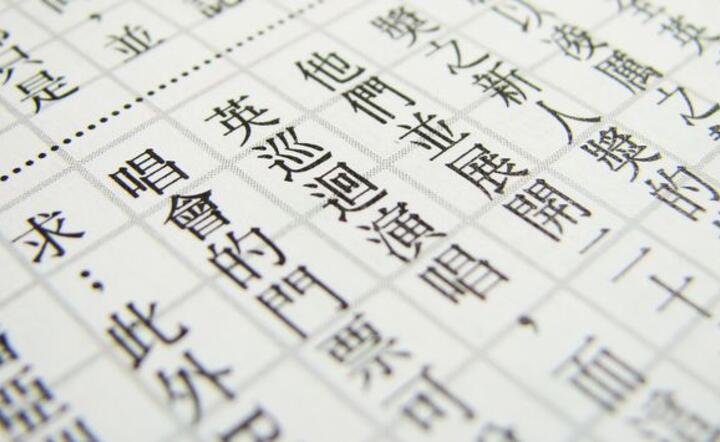 全英
以凌厲之
獎之新人獎的
他們並展開二十
英巡迴演唱，而
唱會的門票可
求；此外
，並
只是